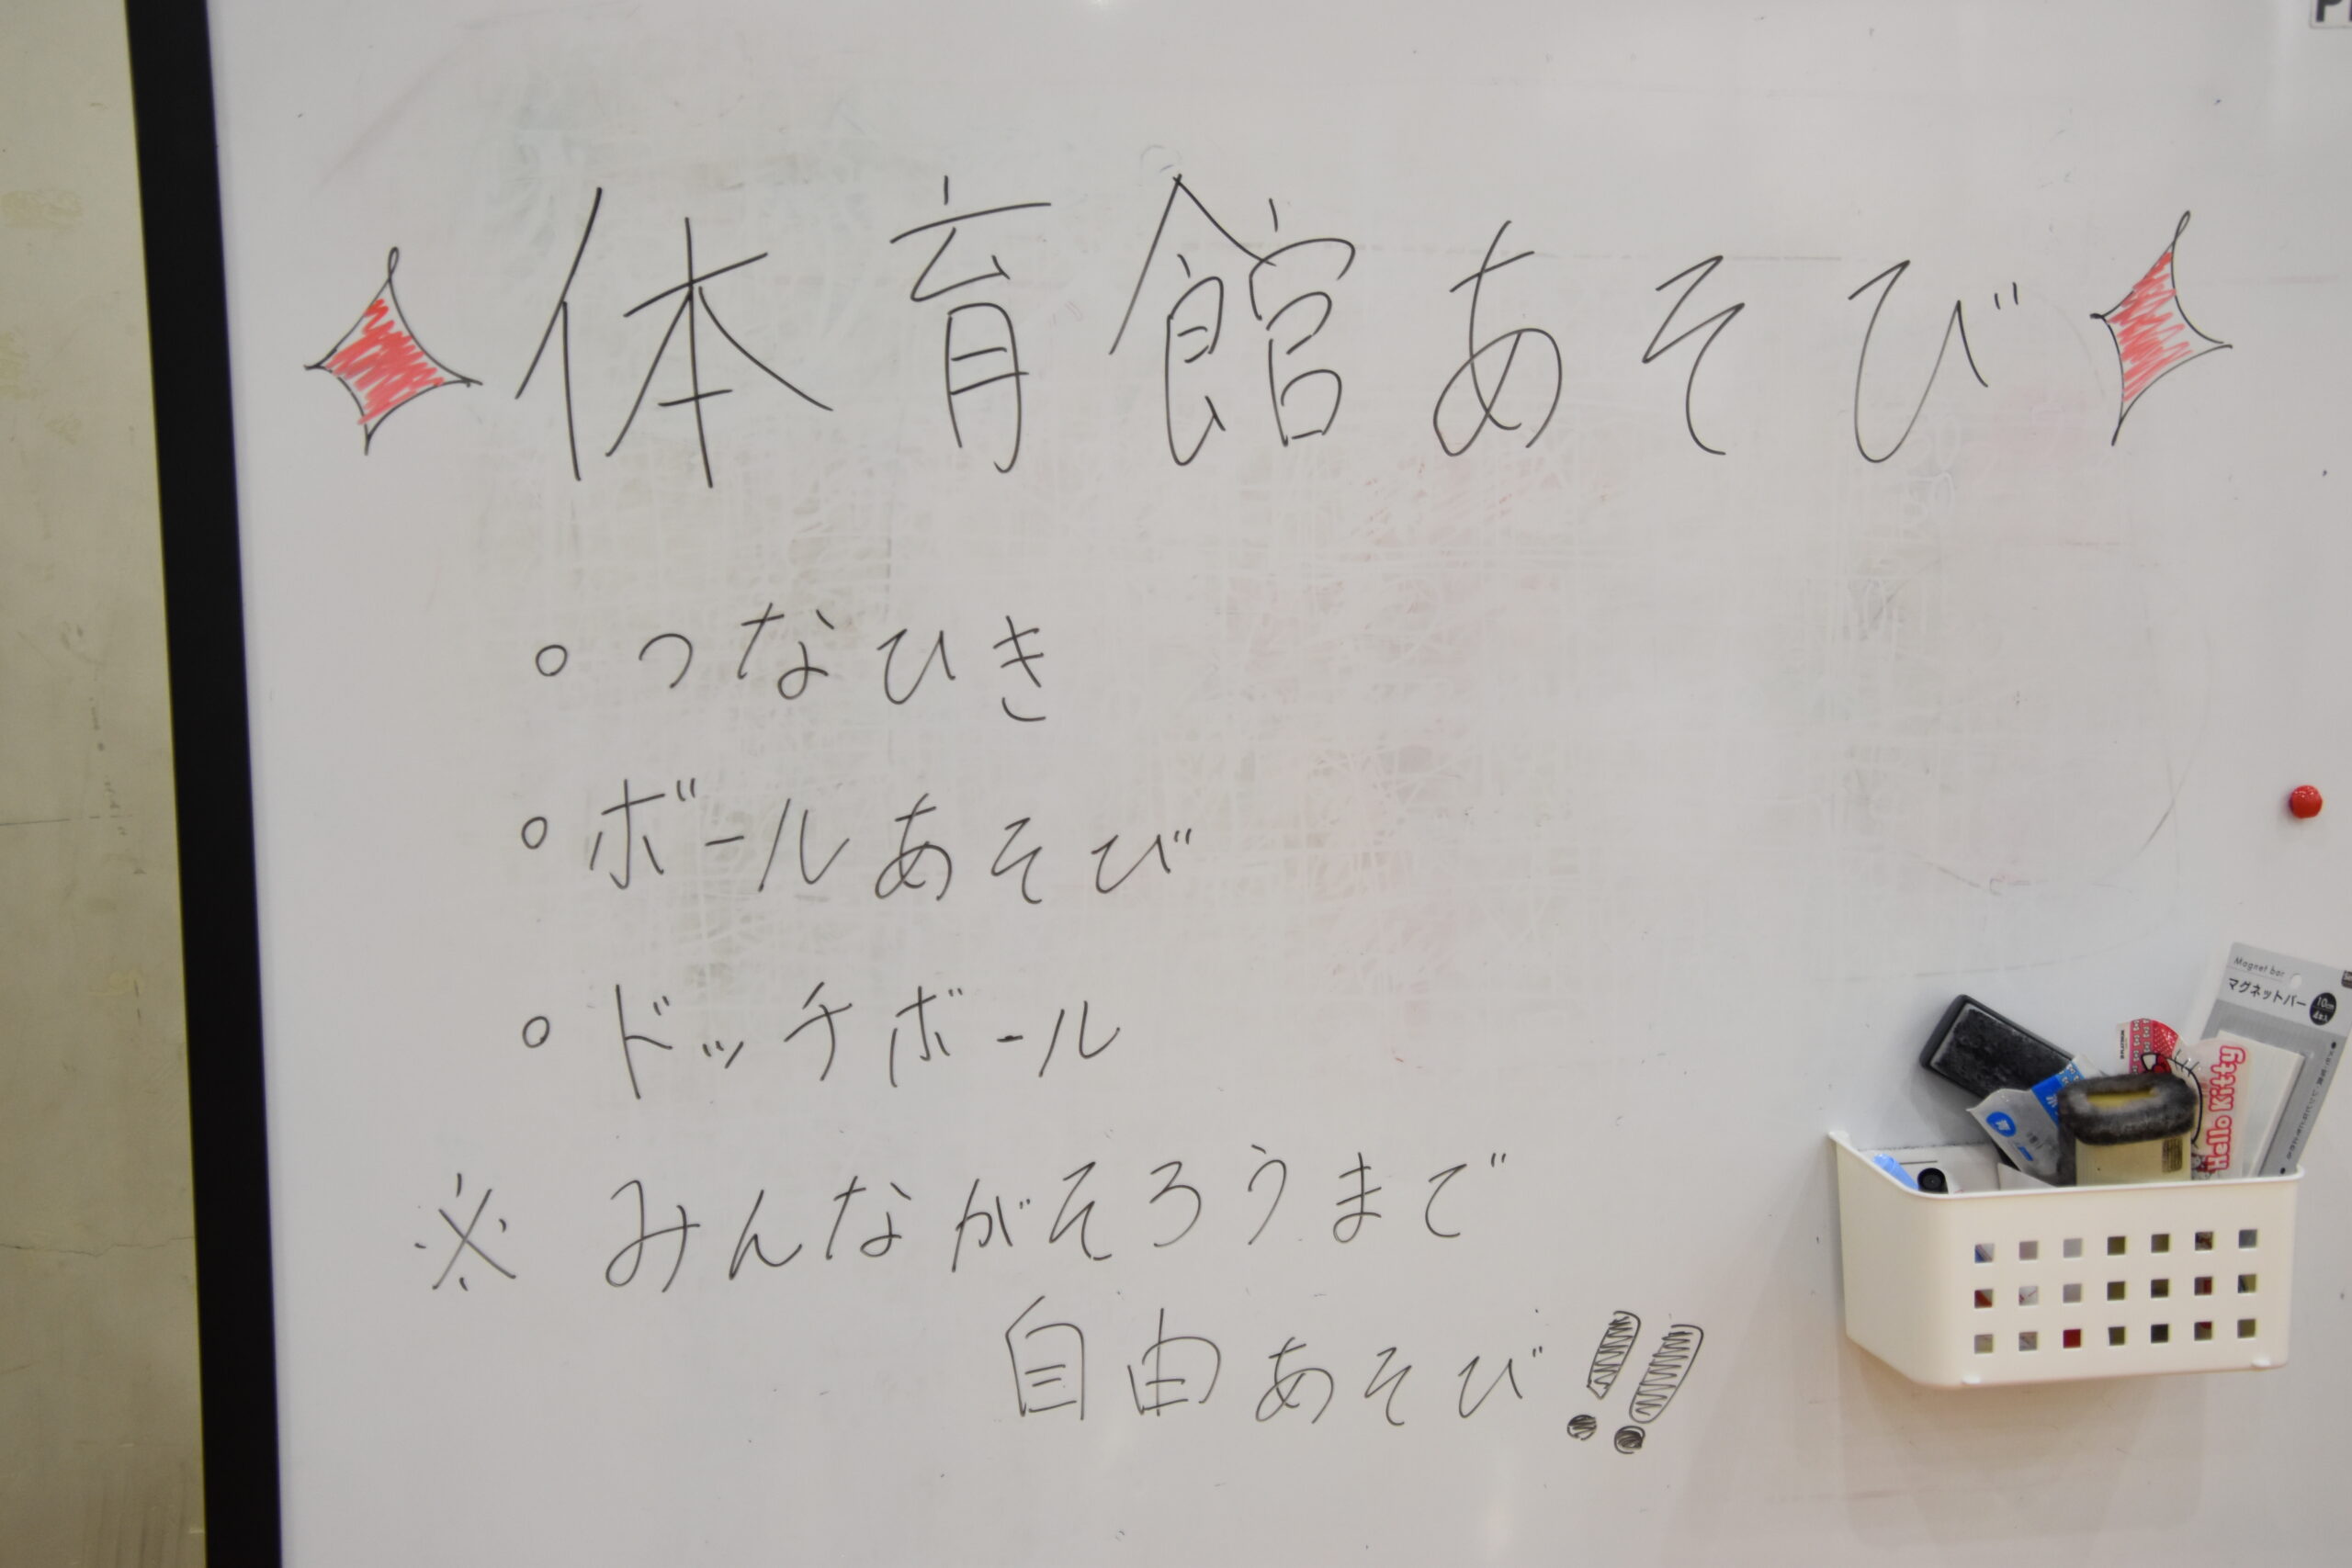 体育館あそび
○ つなひき
○ ボールあそび
○ ドッチボール
※ みんながそろうまで
自由あそび!!
Magnet bar
マグネットバー
10cm
Hello Kitty